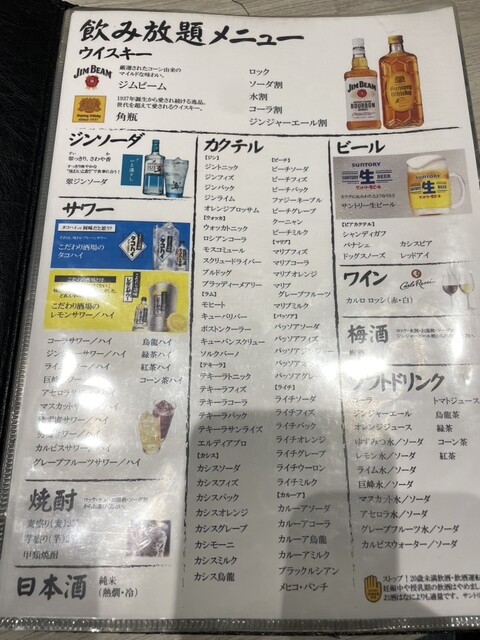 飲み放題メニュー
ウイスキー
JIM BEAM
厳選されたコーン由来の
マイルドな味わい。
ジムビーム
1937年誕生から愛され続ける逸品。
世代を超えて愛されるウイスキー。
角瓶
ロック
ソーダ割
水割
コーラ割
ジンジャーエール割
ジンソーダ
翠ジンソーダ
サワー
こだわり酒場の
タコハイ
こだわり酒場の
レモンサワー/ハイ
コーラサワー/ハイ
ジンジャーサワー/ハイ
ライムサワー/ハイ
巨峰サワー/ハイ
アセロラサワー/ハイ
マスカットサワー/ハイ
カルピスサワー/ハイ
グレープフルーツサワー/ハイ
烏龍ハイ
緑茶ハイ
紅茶ハイ
コーン茶ハイ
焼酎
甲類焼酎
日本酒
純米
(熱燗・冷)
カクテル
【ジン】
ジントニック
ジンフィズ
ジンバック
ジンライム
オレンジブロッサム
【ウォッカ】
ウォッカトニック
ロシアンコーラ
モスコミュール
スクリュードライバー
ブルドッグ
ブラッディーメアリー
【ラム】
モヒート
キューバリバー
ボストンクーラー
キューバンスクリュー
ソルクバーノ
【テキーラ】
テキーラトニック
テキーラフィズ
テキーラコーラ
テキーラバック
テキーラサンライズ
エルディアブロ
【カシス】
カシスソーダ
カシスフィズ
カシスバック
カシスオレンジ
カシスグレープ
カシモーニ
カシスミルク
カシス烏龍
【ピーチ】
ピーチソーダ
ピーチフィズ
ピーチバック
ファジーネーブル
ピーチグレープ
クーニャン
ピーチミルク
【マリブ】
マリブソーダ
マリブコーラ
マリブオレンジ
マリブ
グレープフルーツ
マリブミルク
【パッソア】
パッソアソーダ
パッソアフィズ
【ライチ】
ライチソーダ
ライチフィズ
ライチバック
ライチオレンジ
ライチグレープ
ライチウーロン
ライチミルク
【カルーア】
カルーアソーダ
カルーアコーラ
カルーア烏龍
カルーアミルク
ブラックルシアン
メヒコ・パンチ
ビール
SUNTORY
生
BEER
サントリー生ビール
【ビアカクテル】
シャンディガフ
パナシェ
カシスビア
ドッグスノーズ
レッドアイ
ワイン
Carlo Rossi
カルロ ロッシ (赤・白)
梅酒
ソフトドリンク
コーラ
ジンジャーエール
オレンジジュース
ゆずみつ水/ソーダ
レモン水/ソーダ
ライム水/ソーダ
巨峰水/ソーダ
マスカット水/ソーダ
アセロラ水/ソーダ
グレープフルーツ水/ソーダ
カルピスウォーター/ソーダ
トマトジュース
烏龍茶
緑茶
コーン茶
紅茶
ストップ！20歳未満飲酒・飲酒運転
妊娠中や授乳期の飲酒はやめまし
お酒はなによりも適量です。サント